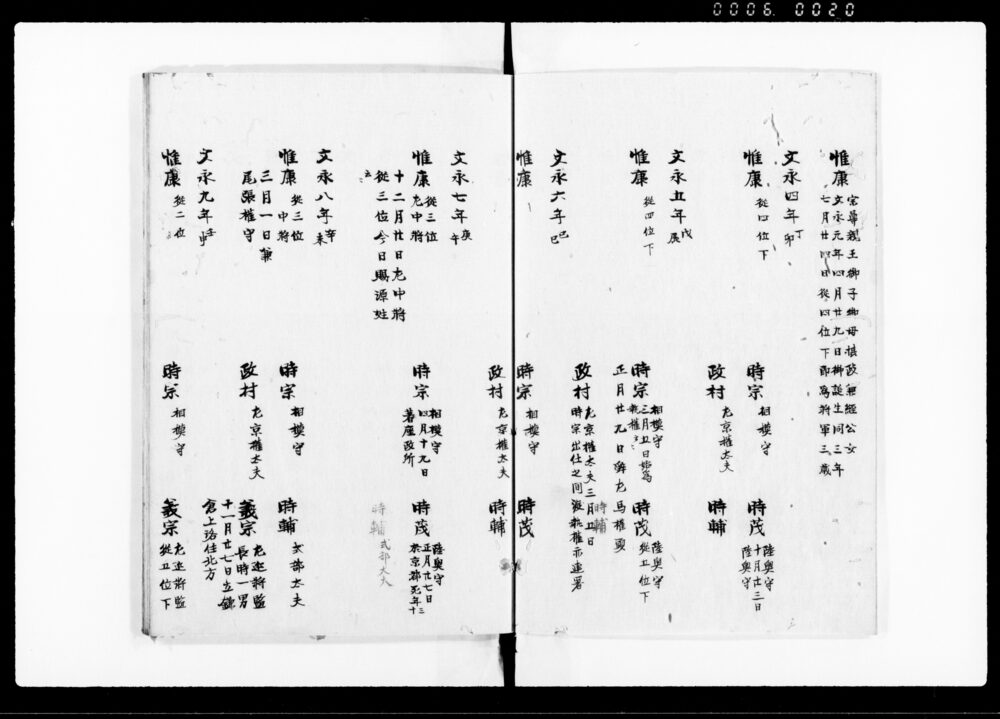 0006 0020
惟康
宗尊親王御子御母摂政兼経公女
文永元年四月廿九日御誕生同三年
七月廿四日従四位下即為将軍三歳
文永四年丁卯
惟康 従四位下
時宗 相模守
時茂 陸奥守
十月廿三日
陸奥守
政村 左京権大夫
時輔
文永五年戊辰
惟康 従四位下
時宗 相模守
三月五日始為
執権
正月廿九日辞左馬権頭
時茂 陸奥守
従五位下
政村 左京権大夫三月五日
時宗出仕之間返執権亦連署
時輔
文永六年己巳
惟康
時宗 相模守
時茂
政村 左京権大夫
時輔
文永七年庚午
惟康 従三位
左中将
十二月廿日左中将
従三位今日賜源姓
時宗 相模守
四月十九日
着座政所
時茂 陸奥守
正月廿七日
於京都死年三十
時輔 式部大夫
文永八年辛未
惟康 従三位
中将
三月一日兼
尾張権守
時宗 相模守
時輔 式部大夫
政村 左京権大夫
義宗 左近将監
長時一男
十一月廿七日立鎌
倉上洛住北方
文永九年壬申
惟康 従二位
時宗 相模守
義宗 左近将監
従五位下